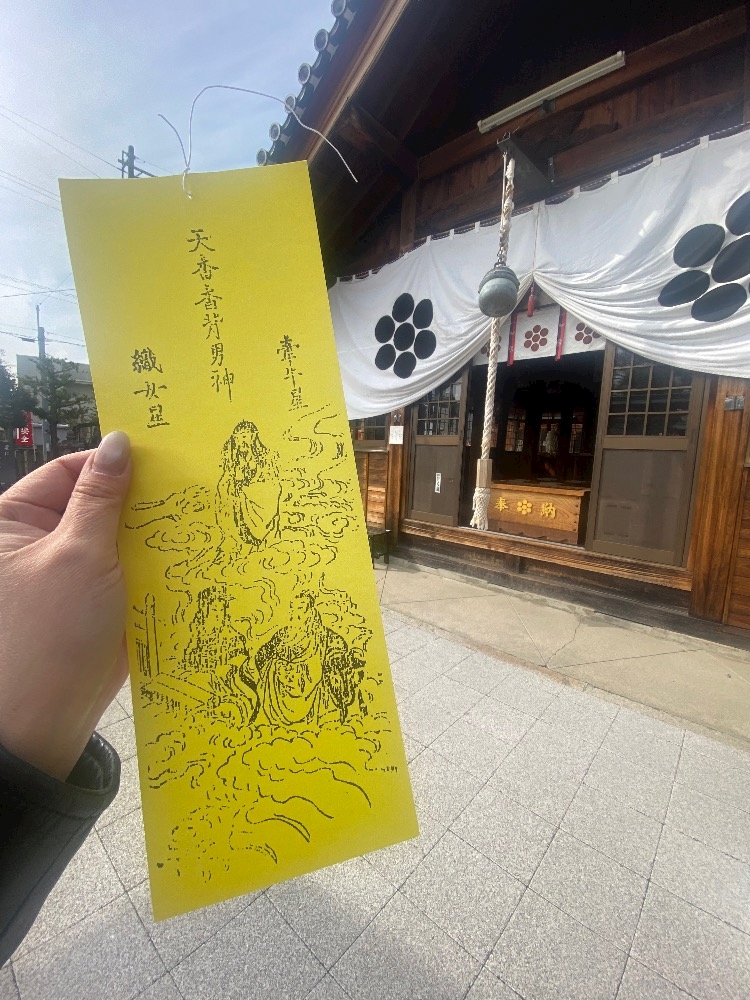 牽牛星
天香香背男神
織女星
奉納